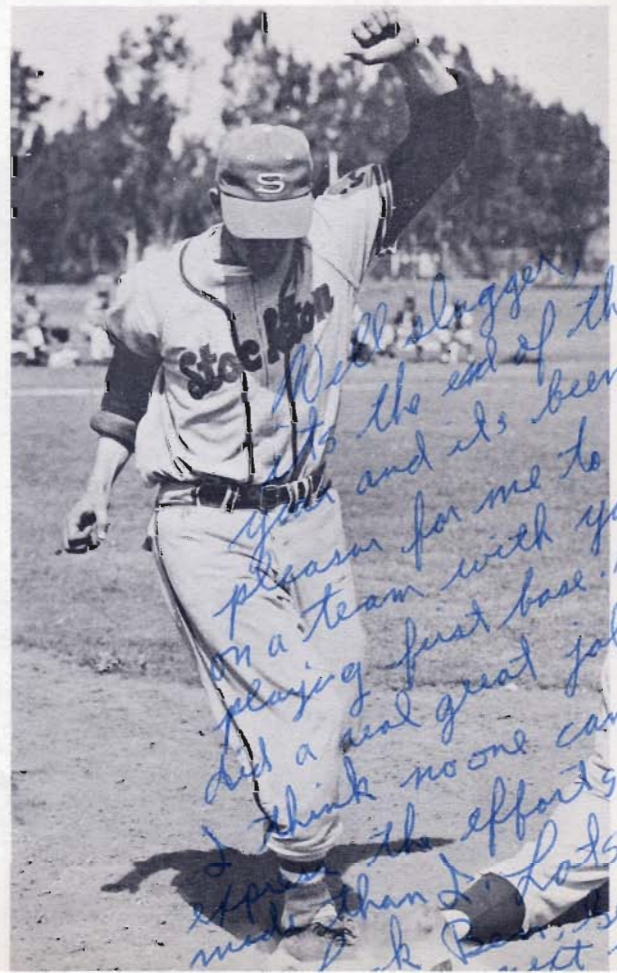 S
Stockton
Well slugger,
its the end of th
year and its been
pleasur for me to
on a team with yo
playing first base.
did a real great jo
I think no one can
express the efforts
made than I. Lots
k
ett